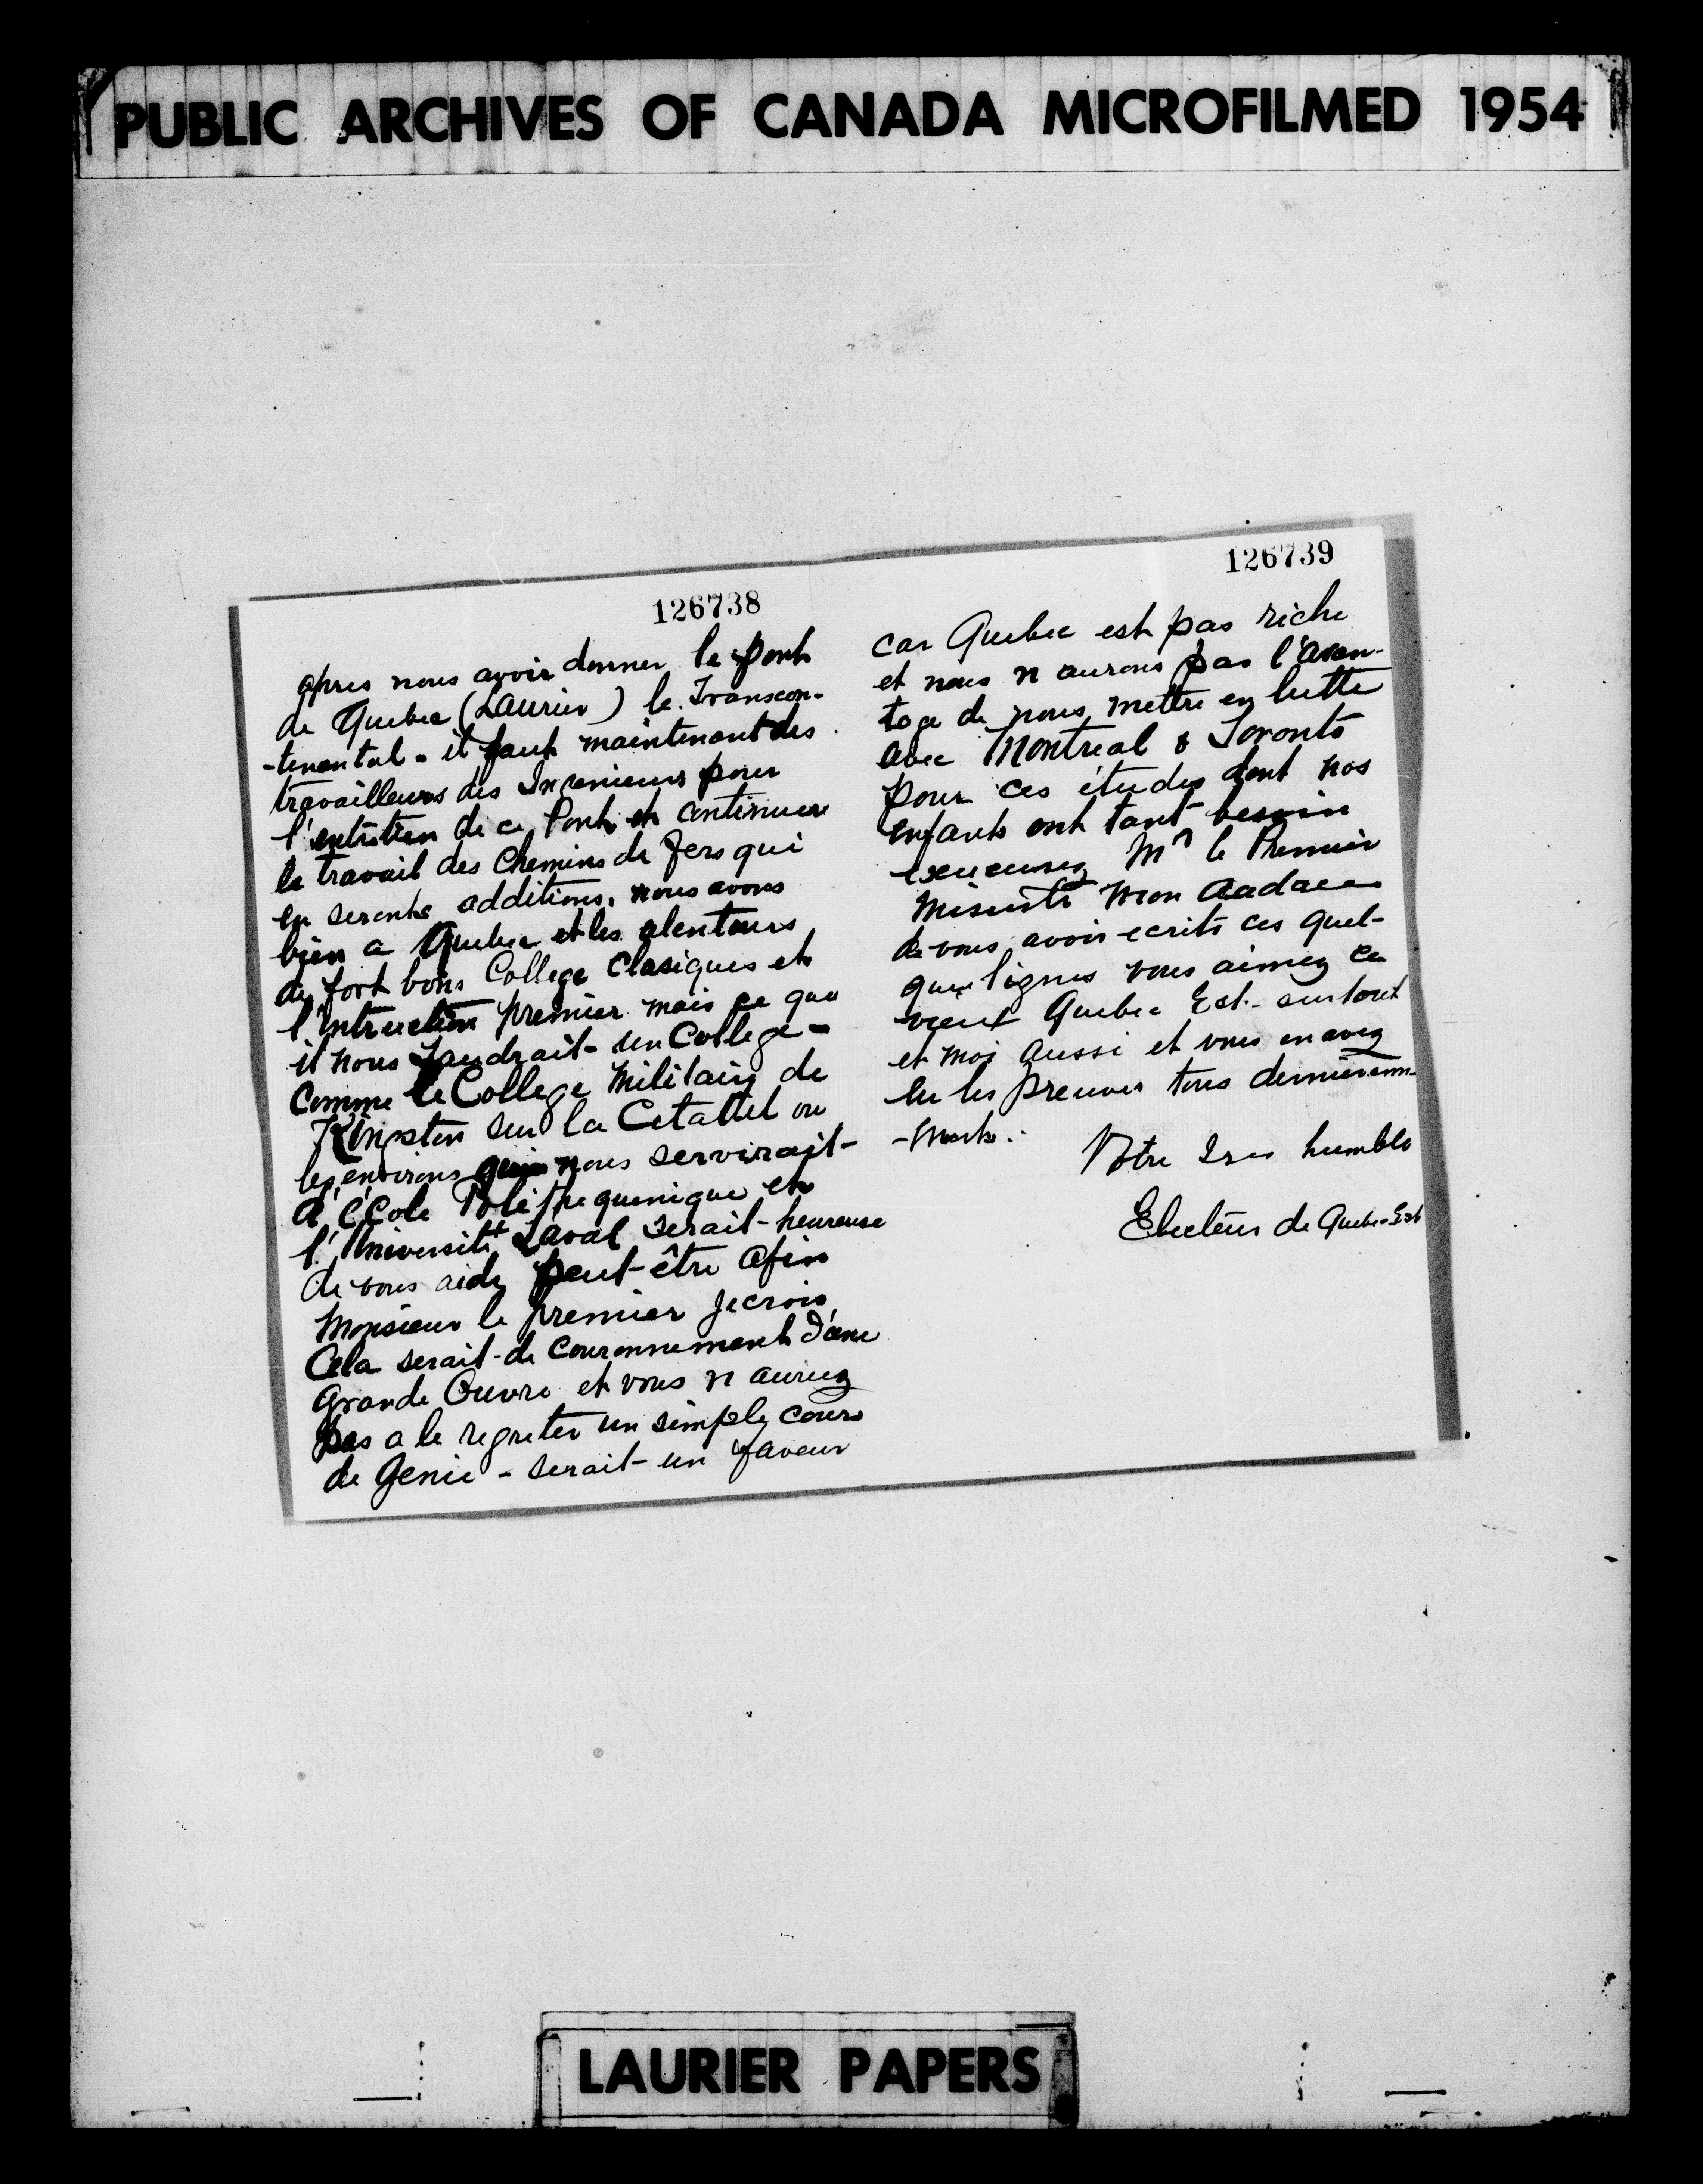 PUBLIC ARCHIVES OF CANADA MICROFILMED 1954
126738
apres nous avoir donner le pont
de Quebec (Laurier) le Transcon-
-tenental - il faut maintenant des
travailleurs des Ingenieurs pour
l'entretien de ce Pont et continuer
le travail des Chemins de Fers qui
en seront additions, nous avons
bien a Quebec et les alentours
de fort bons College Clasiques et
l'Intruction premier mais ce que
il nous Faudrait - un College -
Comme le College Militaire de
Kingston sur la Cetadel ou
les environs nous servirait -
d'école Politequenique et
l'Université Laval serait - heureuse
de vous aidez peut-être afin
Monsieur le premier je crois
Cela serait - le Couronnement d'une
Grande Ouvre et vous n auriez
pas a le regreter un simple cours
de Genie - serait - un faveur
126739
car Quebec est pas riche
et nous n aurons pas l'avan-
tage de nous mettre en lutte
avec Montreal & Toronto
pour ces études dont nos
enfants ont tant besoin
excuusez Mr le Premier
Ministre mon audace
de vous avoir ecrits ces quel-
ques lignes vous aimez ce
vieux Quebec Est - surtout
et moi aussi et vous en avez
eu les preuves tous dernierem-
-ment.
Votre Tres humble
Electeur de Quebec-Est
LAURIER PAPERS